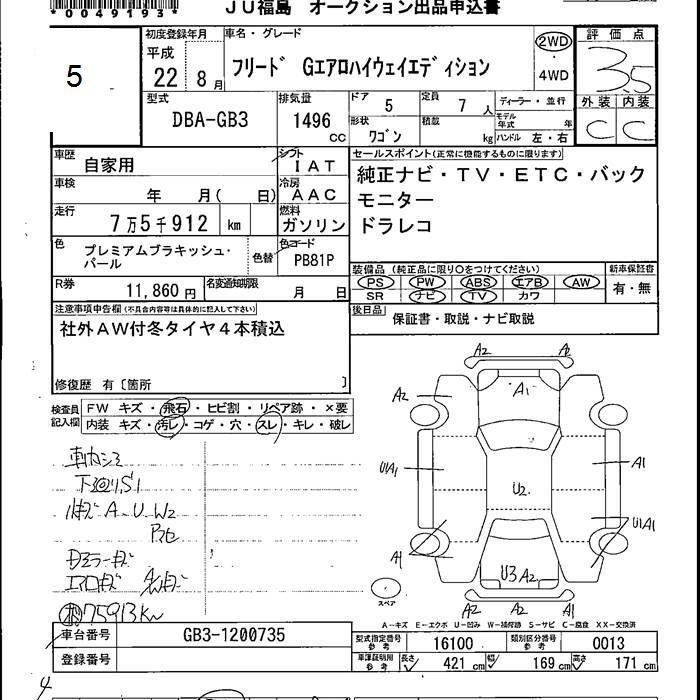 *0049193*
JU福島 オークション出品申込書
5
初度登録年月
平成
22 8月
車名・グレード
フリード Gエアロハイウェイエディション
2WD
4WD
評価点
3.5
外装 内装
C C
型式
DBA-GB3
排気量
1496 cc
ドア 5
定員 7 人
形状 ワゴン
積載 kg
ディーラー・並行
モデル年式 年
ハンドル 左・右
車歴 自家用
シフト IAT
車検 年 月( 日)
冷房 AAC
走行 7万5千912 km
燃料 ガソリン
色 プレミアムブラキッシュ・パール
色替
色コード PB81P
R券 11,860円
名変通知期限 月 日
セールスポイント(正常に機能するものに限ります)
純正ナビ・TV・ETC・バック
モニター
ドラレコ
装備品 (純正品に限り○をつけてください)
PS PW ABS エアB AW
SR ナビ TV カワ
新車保証書
有・無
後日品 保証書・取説・ナビ取説
注意事項申告欄(不具合内容等は具体的に記入して下さい)
社外AW付冬タイヤ4本積込
修復歴 有〔箇所 〕
検査員記入欄
FW キズ・飛石・ヒビ割・リペア跡・×要
内装 キズ・汚レ・コゲ・穴・スレ・キレ・破レ
下廻りS1
A・U・W2
Dミラーキズ
エアロキズ
75913km
A2 A2
A2 A1
UA1 A1
U2
UA1
A1
U3 A2
A2 A2 A1
スペア
A-キズ E-エクボ U-凹み W-補修跡 S-サビ C-腐食 XX-交換済
車台番号 GB3-1200735
登録番号
型式指定番号 参考 16100
類別区分番号 参考 0013
車庫証明用 参考 長さ 421 cm 幅 169 cm 高さ 171 cm